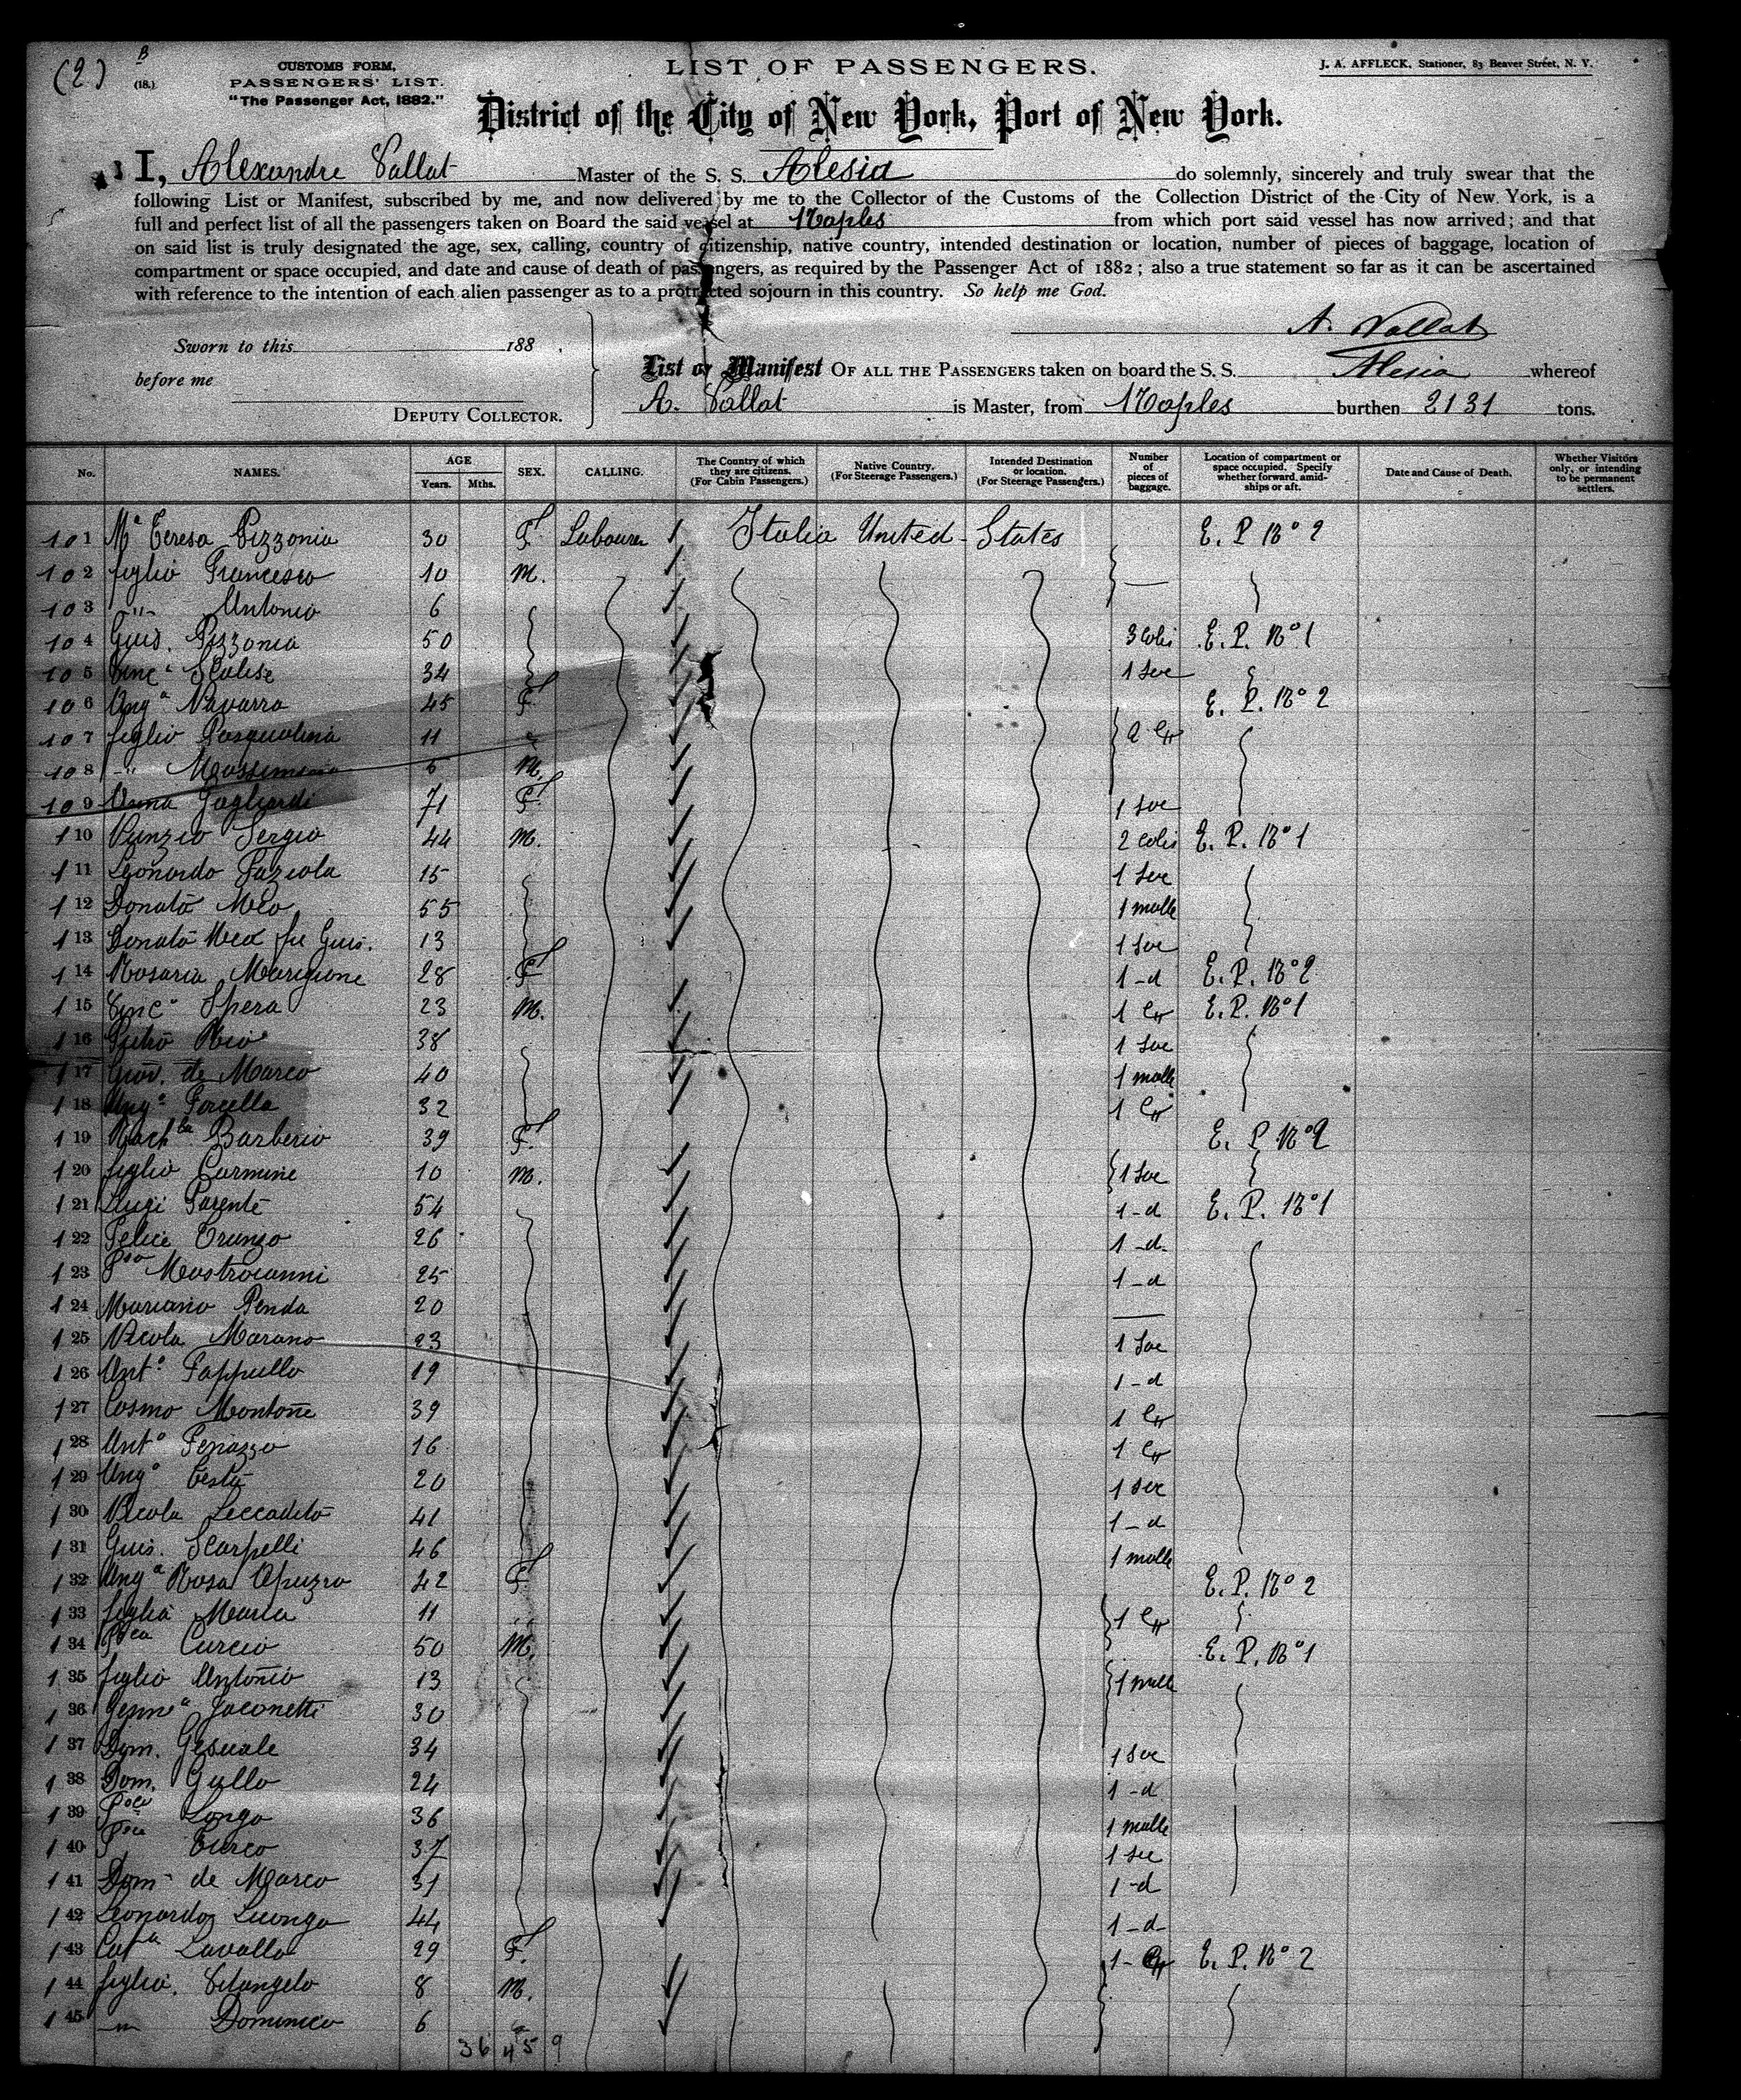 (2.)
B
(18.)
CUSTOMS FORM.
PASSENGERS' LIST.
"The Passenger Act, 1882."
LIST OF PASSENGERS.
J. A. AFFLECK, Stationer, 83 Beaver Street, N. Y.
District of the City of New York, Port of New York.
I, Alexandre Vallat Master of the S. S. Alesia do solemnly, sincerely and truly swear that the
following List or Manifest, subscribed by me, and now delivered by me to the Collector of the Customs of the Collection District of the City of New York, is a
full and perfect list of all the passengers taken on Board the said vessel at Naples from which port said vessel has now arrived; and that
on said list is truly designated the age, sex, calling, country of citizenship, native country, intended destination or location, number of pieces of baggage, location of
compartment or space occupied, and date and cause of death of passengers, as required by the Passenger Act of 1882; also a true statement so far as it can be ascertained
with reference to the intention of each alien passenger as to a protracted sojourn in this country. So help me God.
A. Vallat
Sworn to this 188 .
before me
DEPUTY COLLECTOR.
List or Manifest OF ALL THE PASSENGERS taken on board the S. S. Alesia whereof
A. Vallat is Master, from Naples burthen 2131 tons.
No. NAMES. AGE Years. Mths. SEX. CALLING. The Country of which they are citizens. (For Cabin Passengers.) Native Country. (For Steerage Passengers.) Intended Destination or location. (For Steerage Passengers.) Number of pieces of baggage. Location of compartment or space occupied. Specify whether forward, amidships or aft. Date and Cause of Death. Whether Visitors only, or intending to be permanent settlers.
101 Ma Teresa Pizzonia 30 F Labourer Italia United States E. P. No 2
102 figlio Francesco 10 M. —
103 -"- Antonio 6
104 Gius. Pizzonia 50 3 Colis E. P. No 1
105 Vinca Scalise 34 1 Sac
106 Anga Navarra 45 F E. P. No 2
107 figlio Pasqualina 11 2
108 -"- 6 M.
109 Anna Gagliardi 71 F 1 Sac
110 Nunzio Sergio 44 M. 2 Colis E. P. No 1
111 Leonardo Faziola 15 1 Sac
112 Donato Meo 55 1 malle
113 Donato Meo fu Gius. 13 1 Sac
114 Rosaria Marigione 28 F 1 -d E. P. No 2
115 Vinco Spera 23 M. 1 E. P. No 1
116 38 1 Sac
117 Giov. de Marco 40 1 malle
118 Anga Forcella 32 1
119 Rachla Barberio 39 F. E. P. No 2
120 figlio Carmine 10 M. 1 Sac
121 Luigi Parente 54 1 -d E. P. No 1
122 Felice Trunzo 26 1 -d
123 Mastroianni 25 1 -d
124 Mariano Penda 20 —
125 Nicola Marano 23 1 Sac
126 Anto Pappullo 19 1 -d
127 Cosmo Montone 39 1
128 Anto 16 1
129 Ango Testa 20 1 sac
130 Nicola Leccadito 41 1 -d
131 Gius. Scarpelli 46 1 malle
132 Anga Rosa Apuzzo 42 F E. P. No 2
133 figlia Maria 11 1
134 Curcio 50 M. E. P. No 1
135 figlio Antonio 13 1 malle
136 Jaconetti 30
137 Dom. Gesuale 34 1 Sac
138 Dom. Gullo 24 1 -d
139 Longo 36 1 malle
140 Turco 37 1 sac
141 Dom. de Marco 31 1 -d
142 Leonardo Luongo 44 1 -d
143 Cata Lavalla 29 F. 1 E. P. No 2
144 figlio. Vitangelo 8 M.
145 -"- Dominico 6
36 45 9